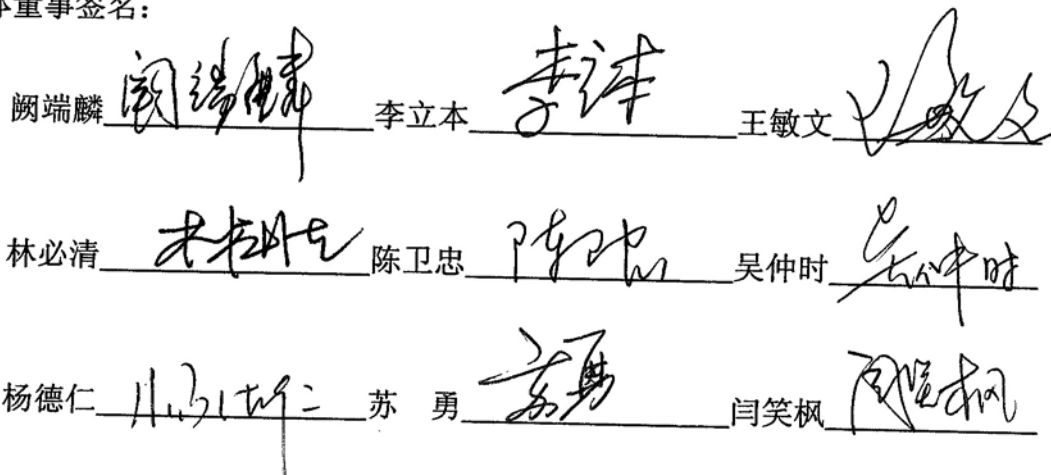 体董事签名：
阙端麟 阙端麟 李立本 李立本 王敏文 王敏文
林必清 林必清 陈卫忠 陈卫忠 吴仲时 吴仲时
杨德仁 苏 勇 苏勇 闫笑枫 闫笑枫